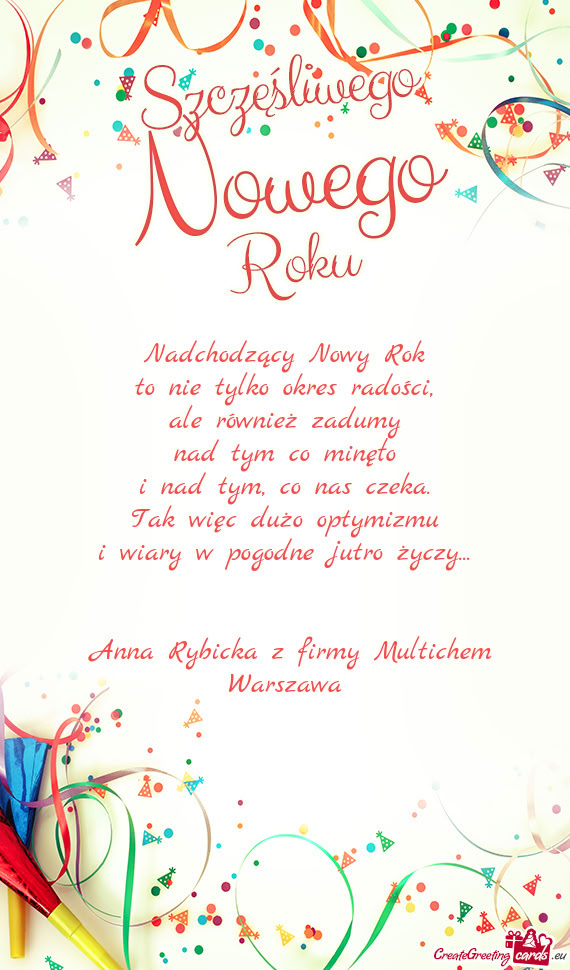 Szczęśliwego
Nowego
Roku
Nadchodzący Nowy Rok
to nie tylko okres radości,
ale również zadumy
nad tym co minęło
i nad tym, co nas czeka.
Tak więc dużo optymizmu
i wiary w pogodne jutro życzy...
Anna Rybicka z firmy Multichem
Warszawa
CreateGreeting cards .eu